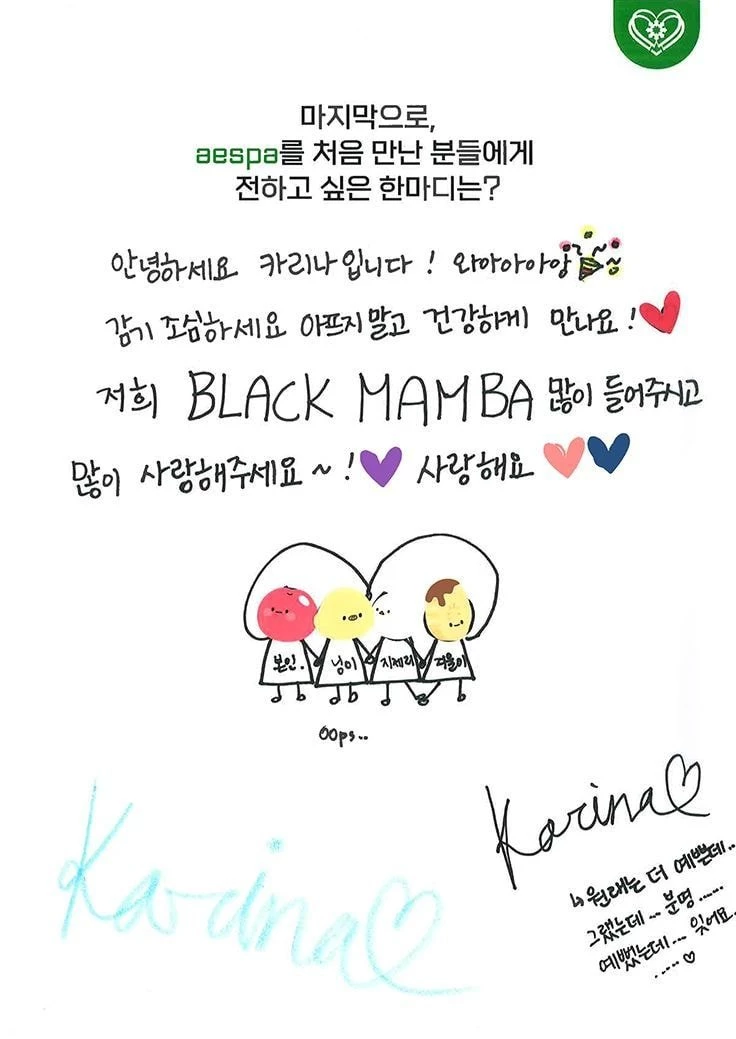 마지막으로,
aespa를 처음 만난 분들에게
전하고 싶은 한마디는?
안녕하세요 카리나입니다! 와아아아앙
감기 조심하세요 아프지말고 건강하게 만나요!
저희 BLACK MAMBA 많이 들어주시고
많이 사랑해주세요~! 사랑해요
본인. 닝이 지제리 겨울이
oops..
Karina
Karina
↳ 원래는 더 예쁜데..
그랬는데... 분명......
예뻤는데... 잊어요.
.....